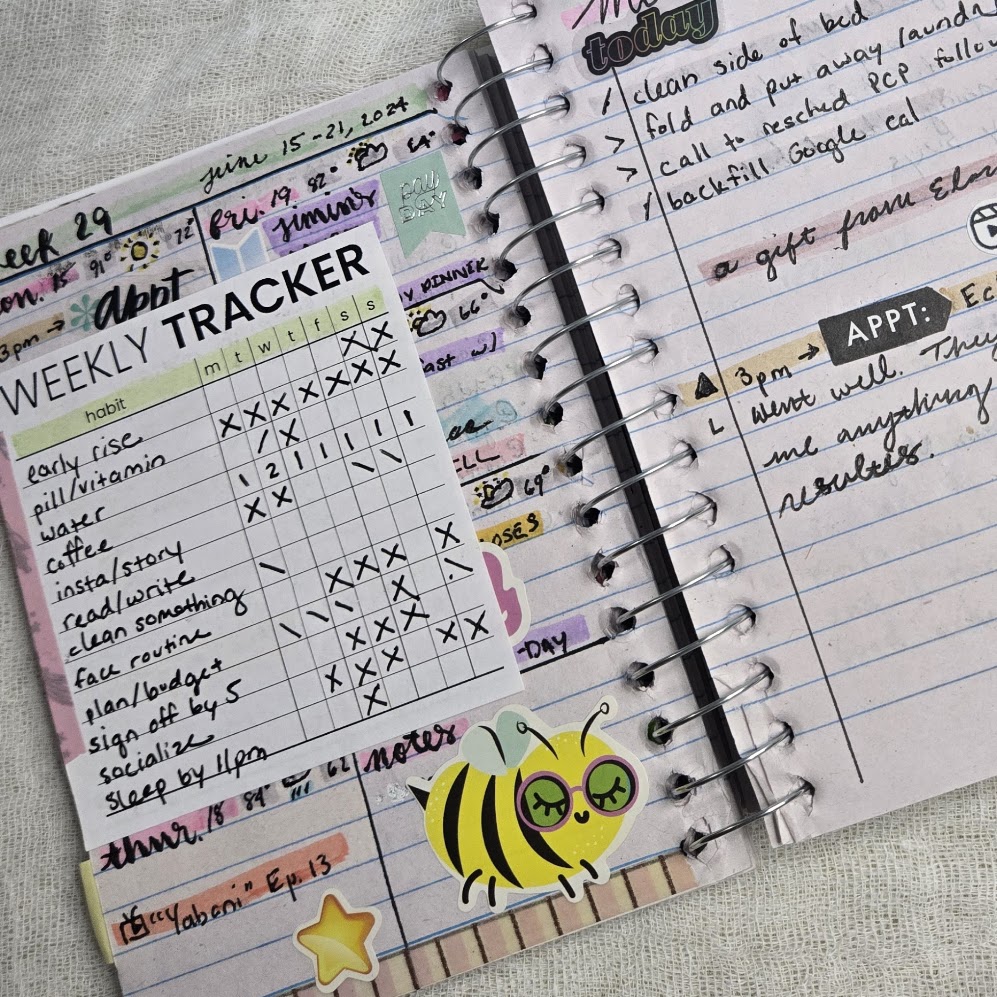 june 15-21, 2024
week 29
fri. 19 82° 64°
72°
jimin's
PAY DAY
mon. 15 91°
appt
3pm →
DINNER
66°
WEEKLY TRACKER
habit m t w t f s s
early rise X X
pill/vitamin X X X X X X X
water / X
coffee 1 2 1 1 1 1 1
insta/story X X \ \
read/write
clean something \ X
face routine X X X \
plan/budget \ \ \ X
sign off by 5 X X X
socialize X X
sleep by 11pm X X X
X
69°
-DAY
notes
62°
thur. 18 84°
"Yabani" Ep. 13
today
/ clean side of bed
> fold and put away laundry
> call to resched PCP follow
/ backfill Google cal
a gift from
APPT:
3pm →
went well. They
me anything
results.